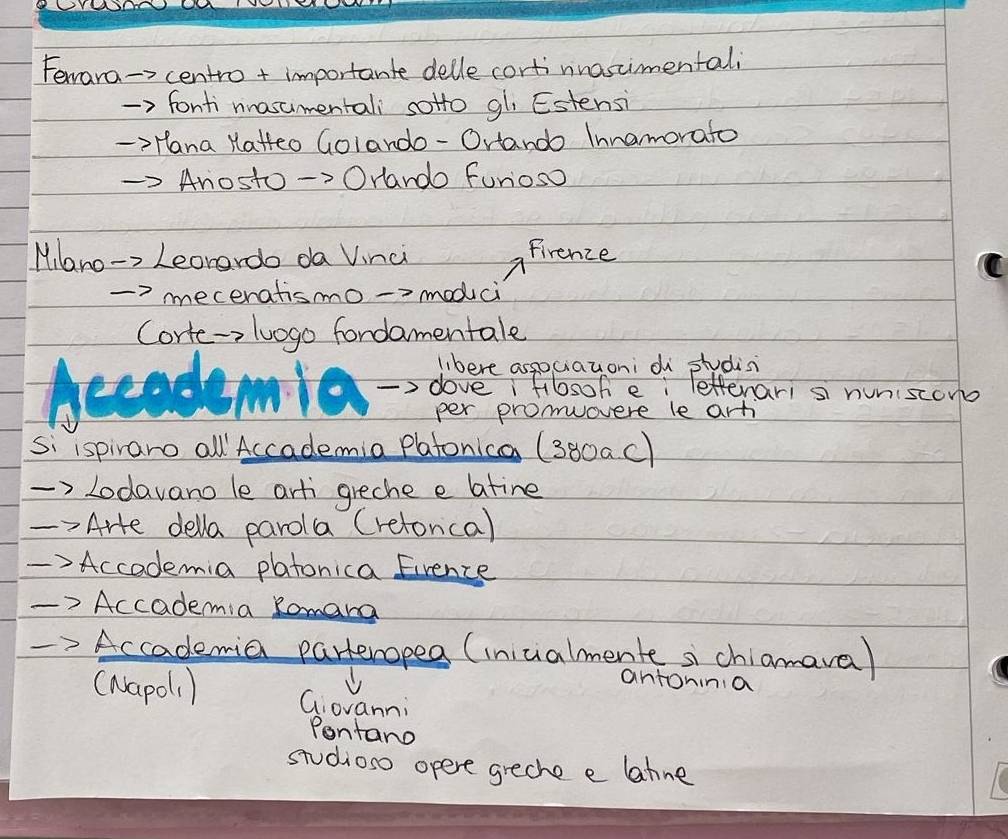 Erasmo da Rotterdam
Ferrara -> centro + importante delle corti rinascimentali
-> fonti rinascimentali sotto gli Estensi
-> Maria Matteo Goiardo - Orlando Innamorato
-> Ariosto -> Orlando Furioso
Milano -> Leonardo da Vinci
Firenze
-> mecenatismo -> medici
Corte -> luogo fondamentale
Accademia -> libere associazioni di studisi
dove i filosofi e i letterari si runiscono
per promuovere le arti
Si ispirano all'Accademia Platonica (380a.C)
-> Lodavano le arti greche e latine
-> Arte della parola (retorica)
-> Accademia platonica Firenze
-> Accademia Romana
-> Accademia partenopea (inizialmente si chiamava)
antoninia
(Napoli)
Giovanni
Pontano
studioso opere greche e latine